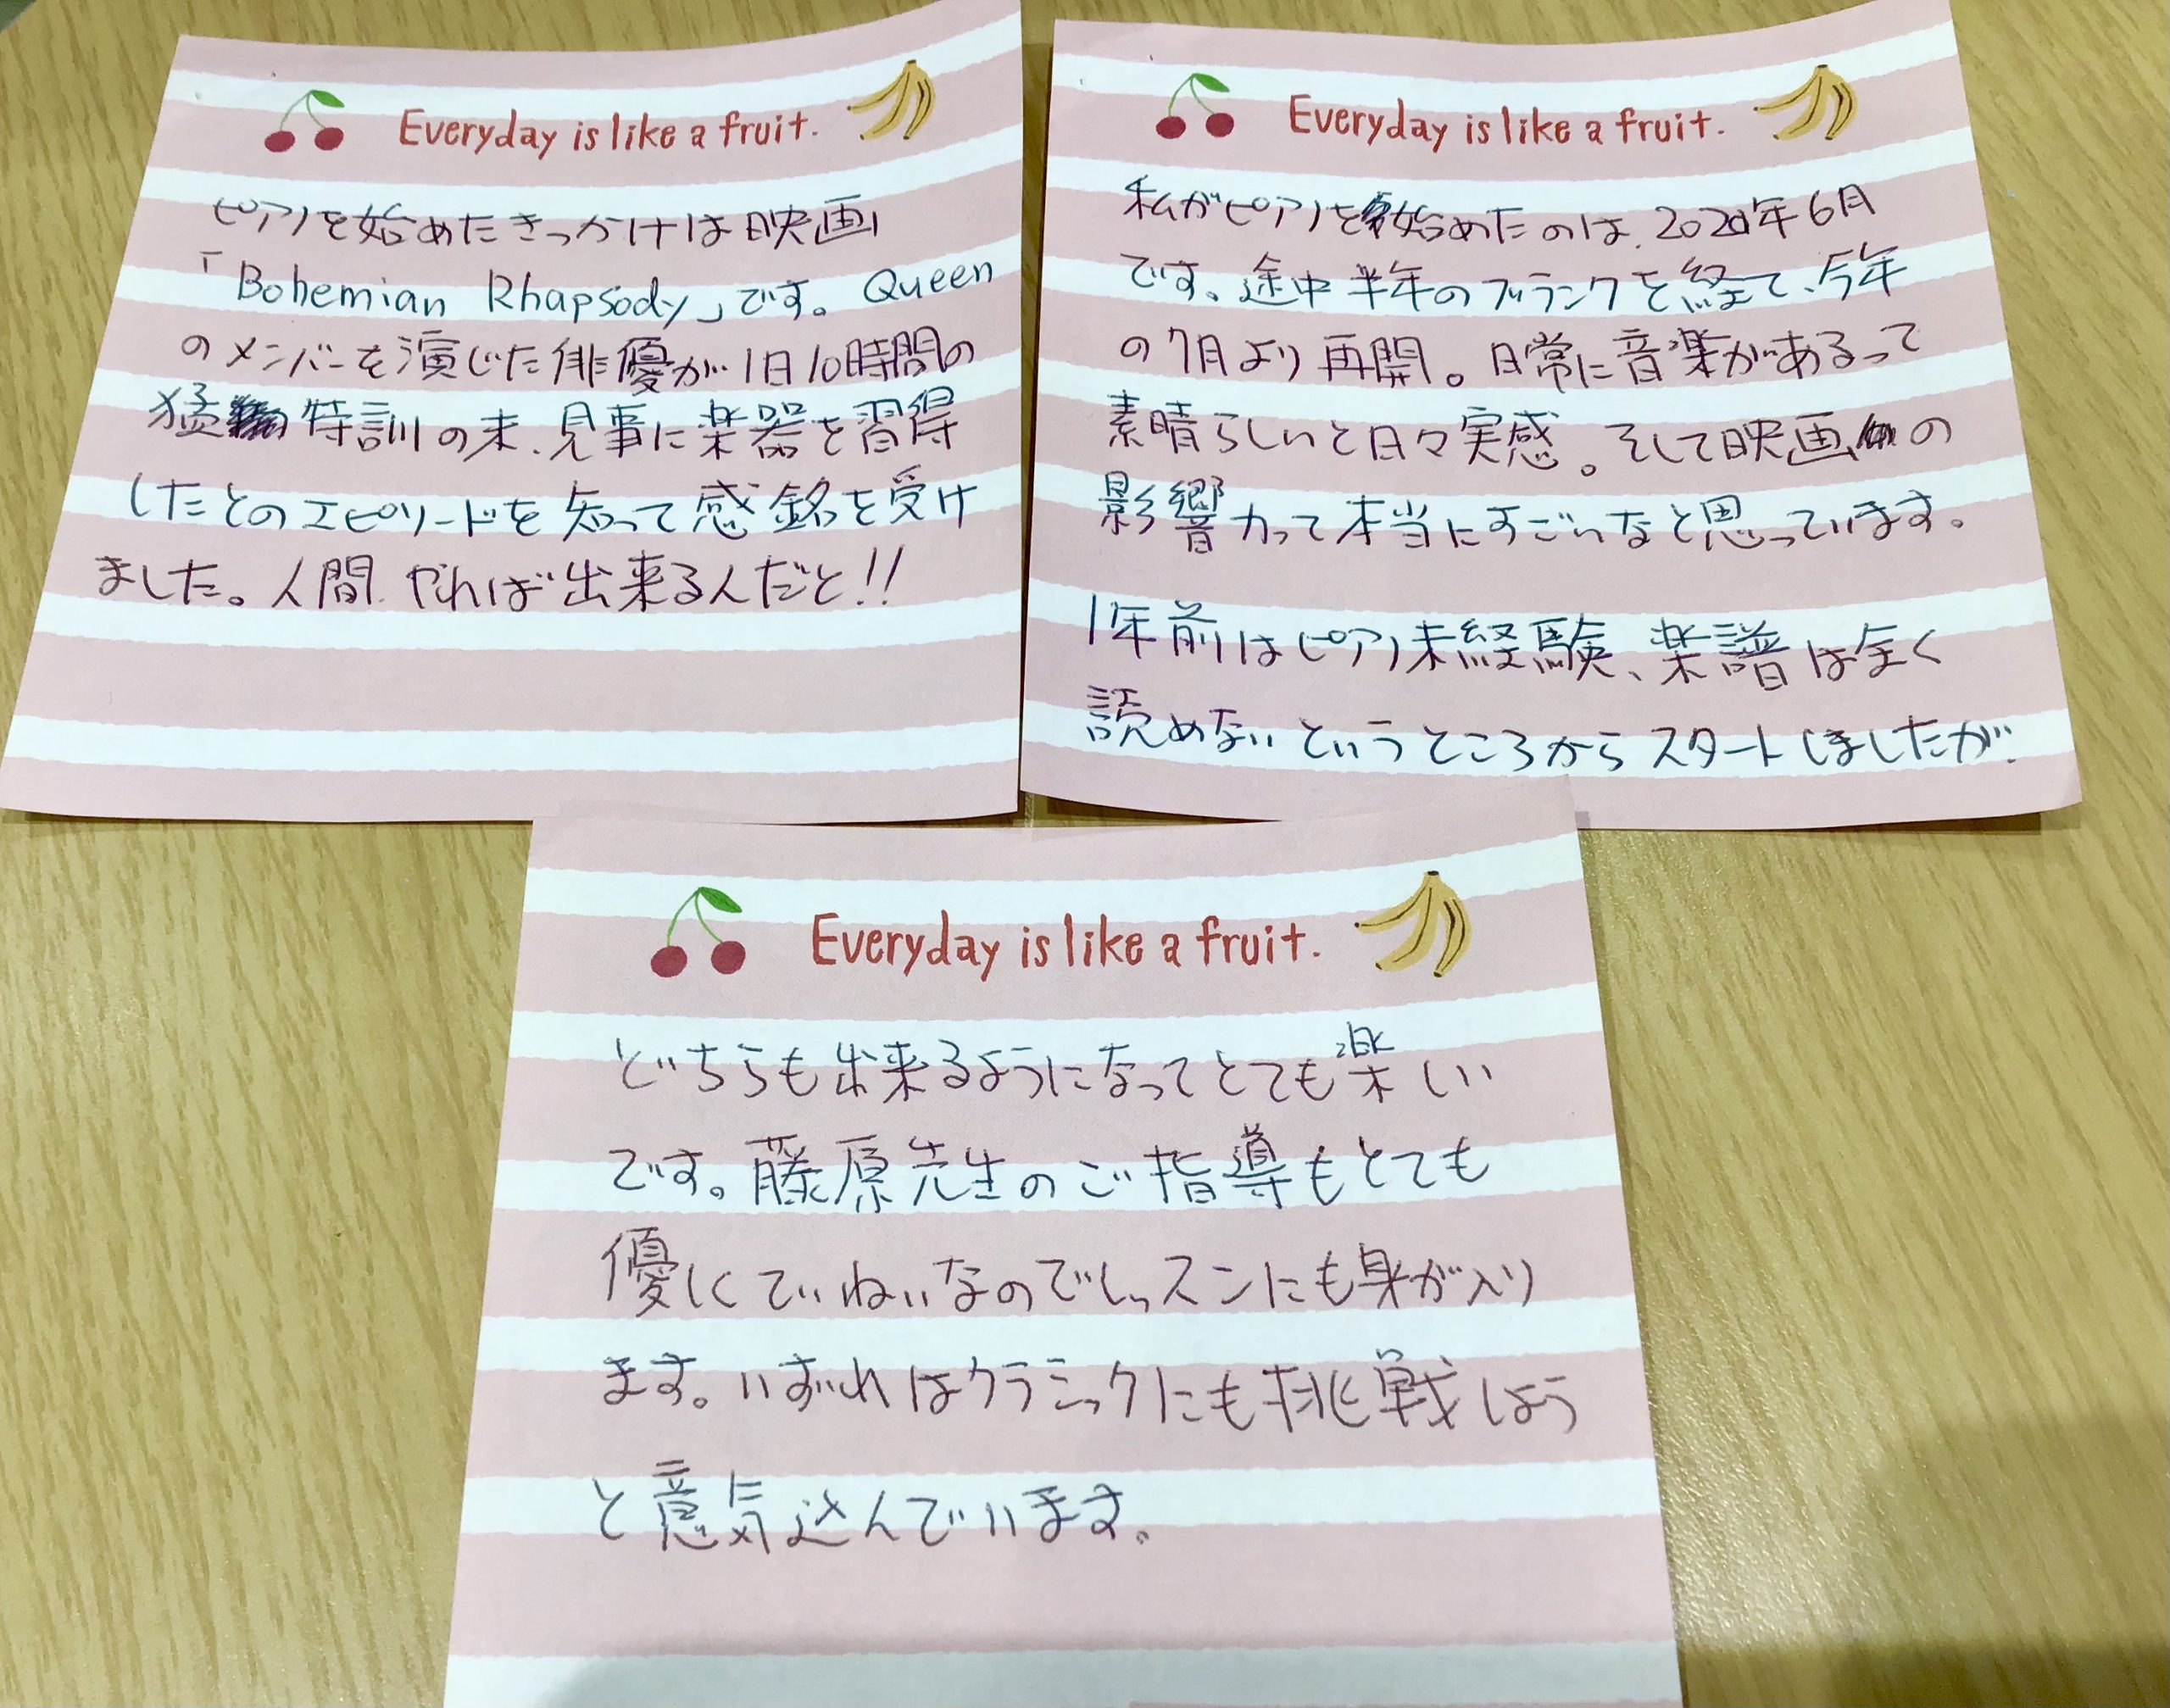 Everyday is like a fruit.
ピアノを始めたきっかけは映画
「Bohemian Rhapsody」です。Queen
のメンバーを演じた俳優が1日10時間の
猛特訓の末、見事に楽器を習得
したとのエピソードを知って感銘を受け
ました。人間、やれば出来るんだと!!
Everyday is like a fruit.
私がピアノを始めたのは、2020年6月
です。途中半年のブランクを経て、今年
の7月より再開。日常に音楽があるって
素晴らしいと日々実感。そして映画の
影響力って本当にすごいなと思っています。
1年前はピアノ未経験、楽譜は全く
読めないというところからスタートしましたが、
Everyday is like a fruit.
どちらも出来るようになってとても楽しい
です。藤原先生のご指導もとても
優しくていねいなのでレッスンにも身が入り
ます。いずれはクラシックにも挑戦しよう
と意気込んでいます。